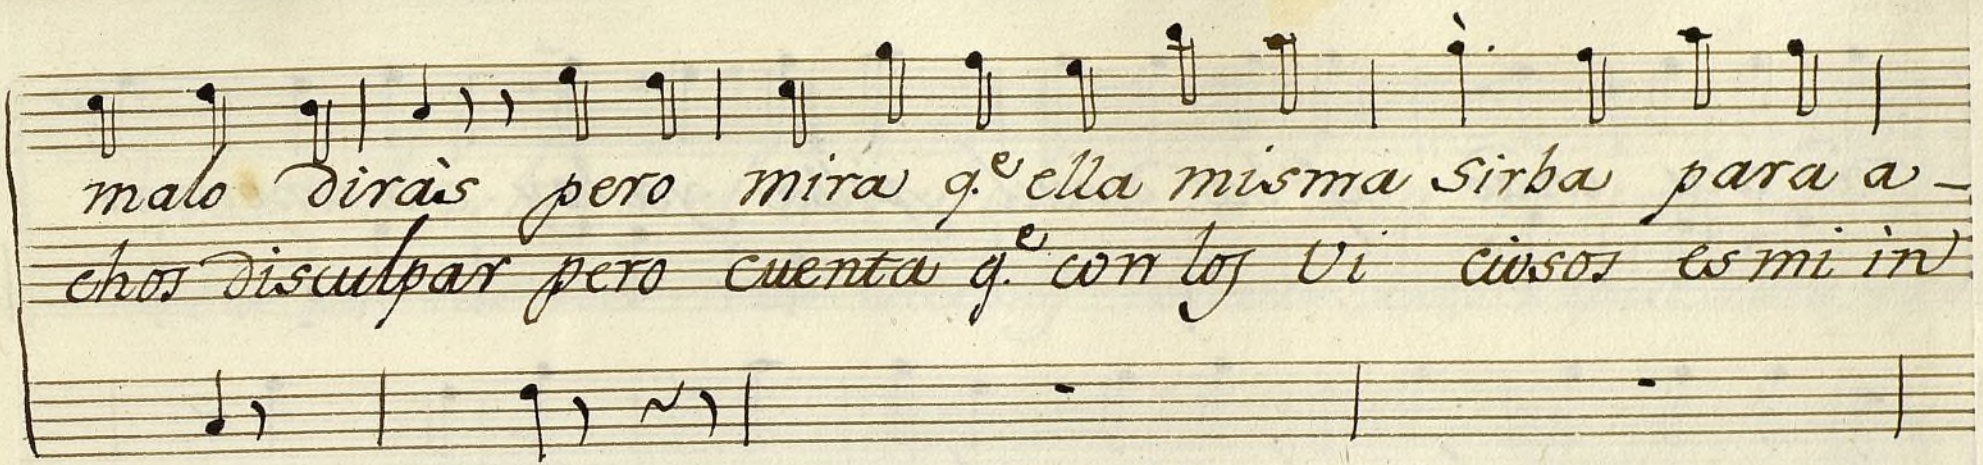 malo diràs pero mira q.e ella misma sirba para a-
chos disculpar pero cuenta q.e con los vi ciosos es mi in